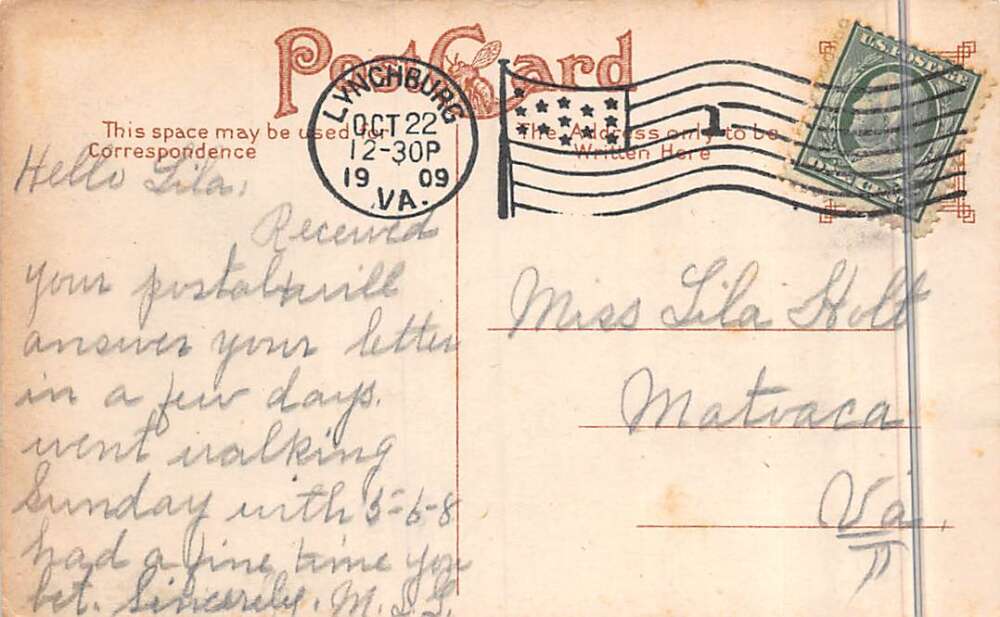 Post Card
This space may be used for
Correspondence
The Address only to be
Written Here
LYNCHBURG
OCT 22
12-30P
19 09
VA.
1
U.S. POSTAGE
Hello Lila,
Received
your postal & will
answer your letter
in a few days.
went walking
Sunday with 5-6-8
had a fine time you
bet. Sincerely. M.
Miss Lila Holt
Matoaca
Va,